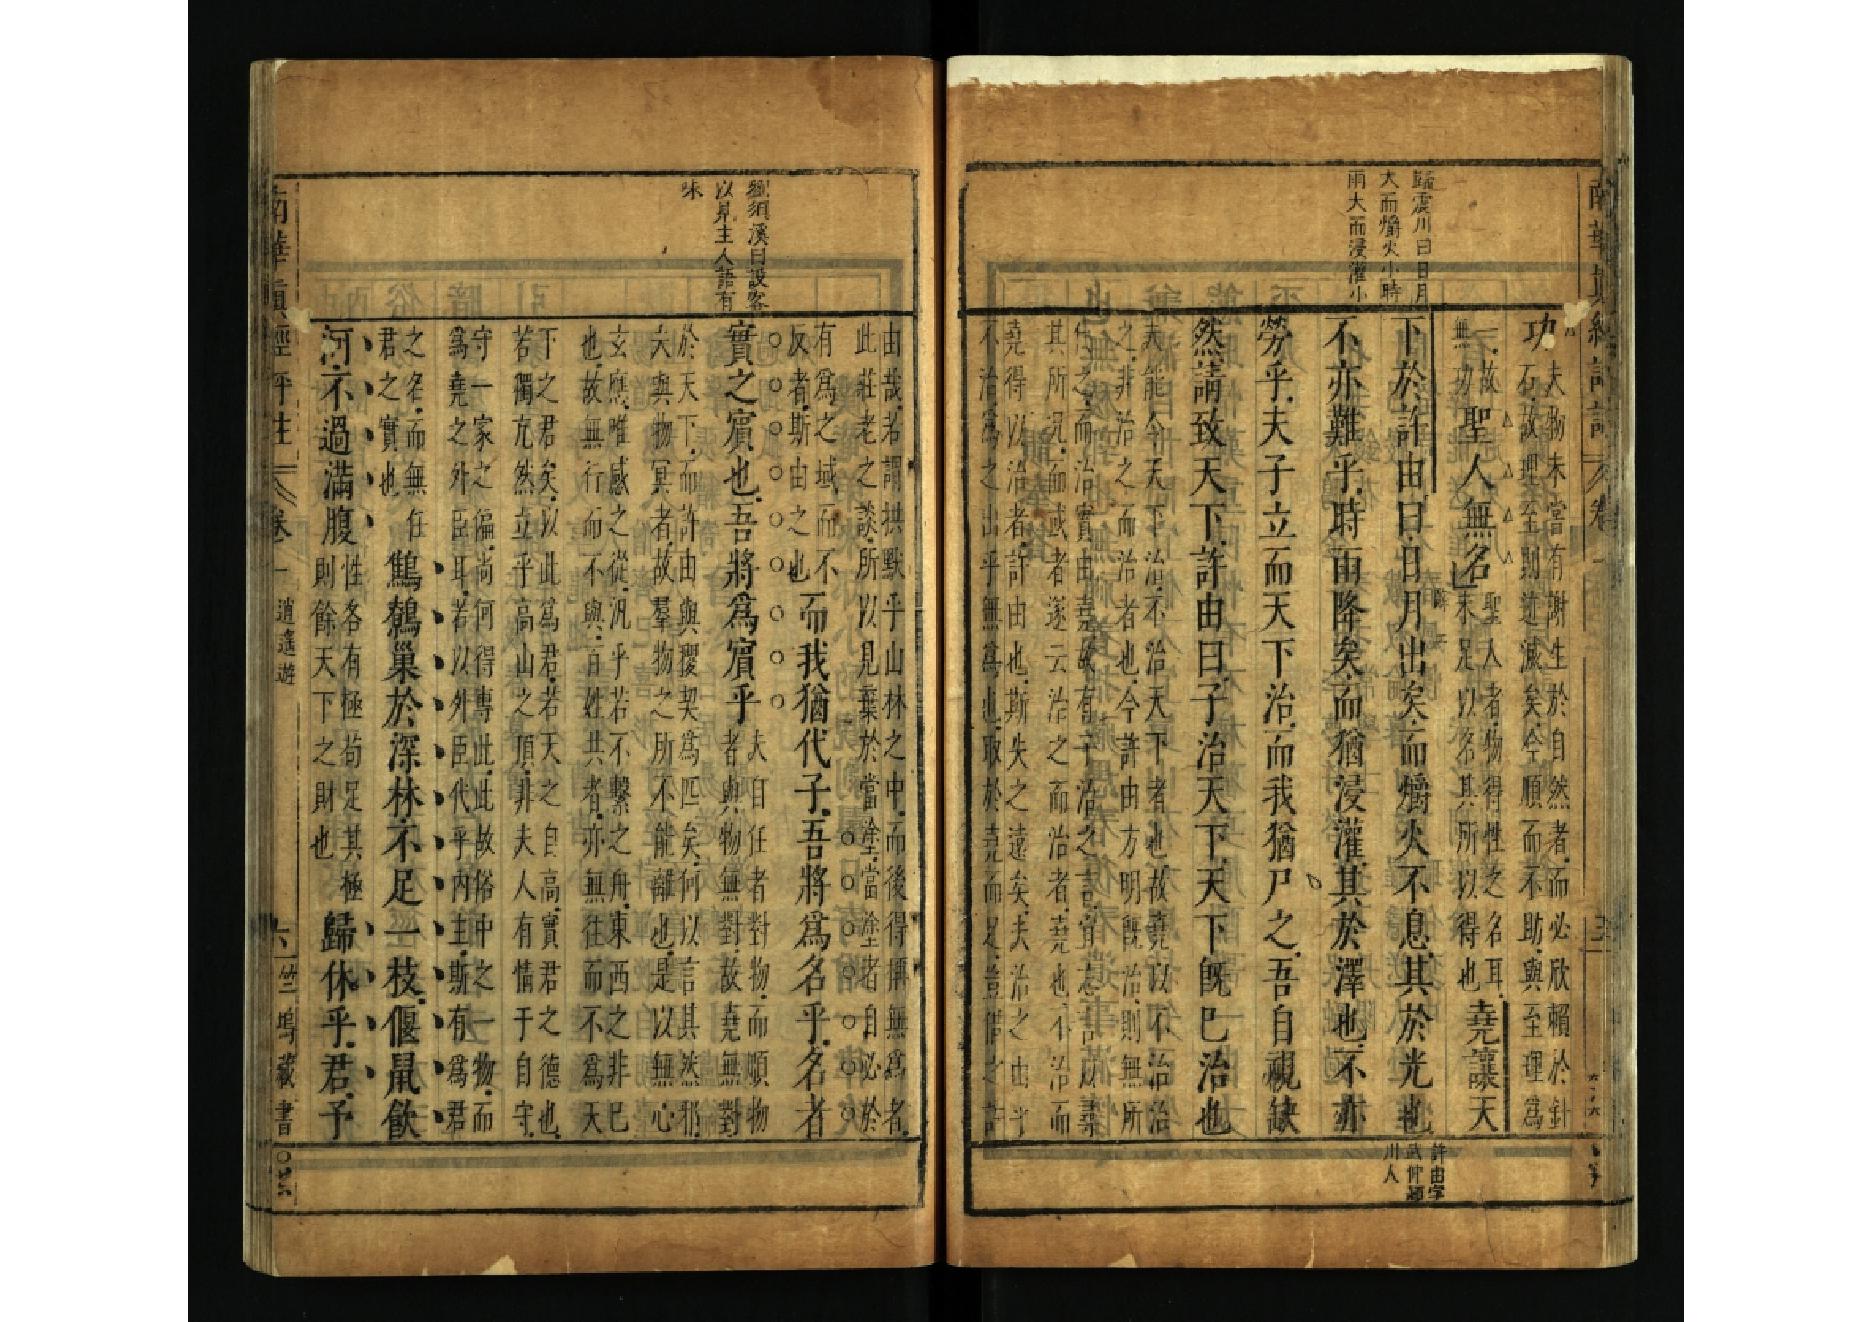 南華真經評註 卷一
歸震川曰日月
大而爝火小時
雨大而浸灌小
功
夫物未嘗有謝生於自然者而必欣賴於針
石故理至則迹滅矣今順而不助與至理為
一故
無功
聖人無名
聖人者物得性之名耳
未足以名其所以得也
堯讓天
下於許由曰日月出矣而爝火不息其於光也
不亦難乎時雨降矣而猶浸灌其於澤也不亦
勞乎夫子立而天下治而我猶尸之吾自視缺
然請致天下許由曰子治天下天下既已治也
夫能令天下治不治天下者也故堯以不治治
之非治之而治者也今許由方明既治則無所
代之而治實由堯故有子治之言宜忘言以尋
其所況而或者遂云治之而治者堯也不治而
堯得以治者許由也斯失之遠矣夫治之由乎
不治為之出乎無為也取於堯而足豈借之許
許由字
武仲潁
川人
劉須溪曰設客
以見主人語有
味
由哉若謂拱默乎山林之中而後得稱無為者
此莊老之談所以見棄於當塗當塗者自必於
有為之域而不
反者斯由之也
而我猶代子吾將為名乎名者
實之賓也吾將為賓乎
夫自任者對物而順物
者與物無對故堯無對
於天下而許由與稷契為匹矣何以言其然邪
夫與物冥者故羣物之所不能離也是以無心
玄應唯感之從汎乎若不繫之舟東西之非已
也故無行而不與百姓共者亦無往而不為天
下之君矣以此為君若天之自高實君之德也
若獨亢然立乎高山之頂非夫人有情于自守
守一家之偏尚何得專此此故俗中之一物而
為堯之外臣耳若以外臣代乎內主斯有為君
之名而無任
君之實也
鷦鷯巢於深林不足一枝偃鼠飲
河不過滿腹
性各有極苟足其極
則餘天下之財也
歸休乎君予
南華真經評註 卷一 逍遙遊 六 竺塢藏書